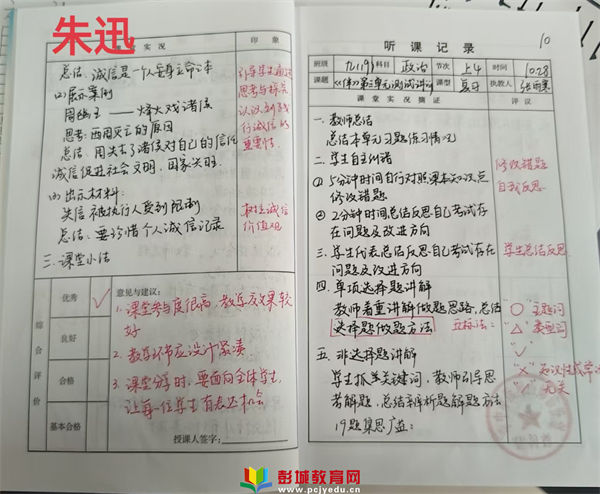 朱迅
课堂实况
印象
总结：诚信是一个人安身立命之本
(2)展示案例
周幽王——烽火戏诸侯
思考：西周灭亡的原因
总结：周失去了诸侯对自己的信任
诚信促进社会文明，国家兴旺.
(3)出示材料：
失信被执行人受到限制
总结：要珍惜个人诚信记录
三.课堂小结
引导学生通过
思考与探究
认识到践
行诚信的
重要性.
树立诚信
价值观
综合评价
优秀
良好
合格
基本合格
意见与建议：
1.课堂参与度很高，教学效果较
好
2.教学环节应设计紧凑
3.课堂分享时，要面向全体学生，
让每一位学生有表达机会
授课人签字：
10
听课记录
班级
九(19)
科目
政治
节次
上4
时间
10.28
课题
第三单元测试讲评
课型
复习
执教人
课堂实况摘证
评议
一.教师总结
总结本单元习题练习情况
二.学生自主纠错
① 5分钟时间自行对照课本知识点
修改错题
② 2分钟时间总结反思自己考试存
在问题及改进方向
三.学生代表总结反思自己考试存在
问题及改进方向
四.单项选择题讲解
教师着重讲解做题思路，总结
选择题做题方法
五.非选择题讲解
学生抓关键词，教师引导思
考解题，总结辨析题解题方法
19题集思广益：
修改错题
自我反思
学生总结反思
"○"主题词
"△"类型词
"√"
"×"知识性错误
无关
彭城教育网
www.pcjyedu.cn